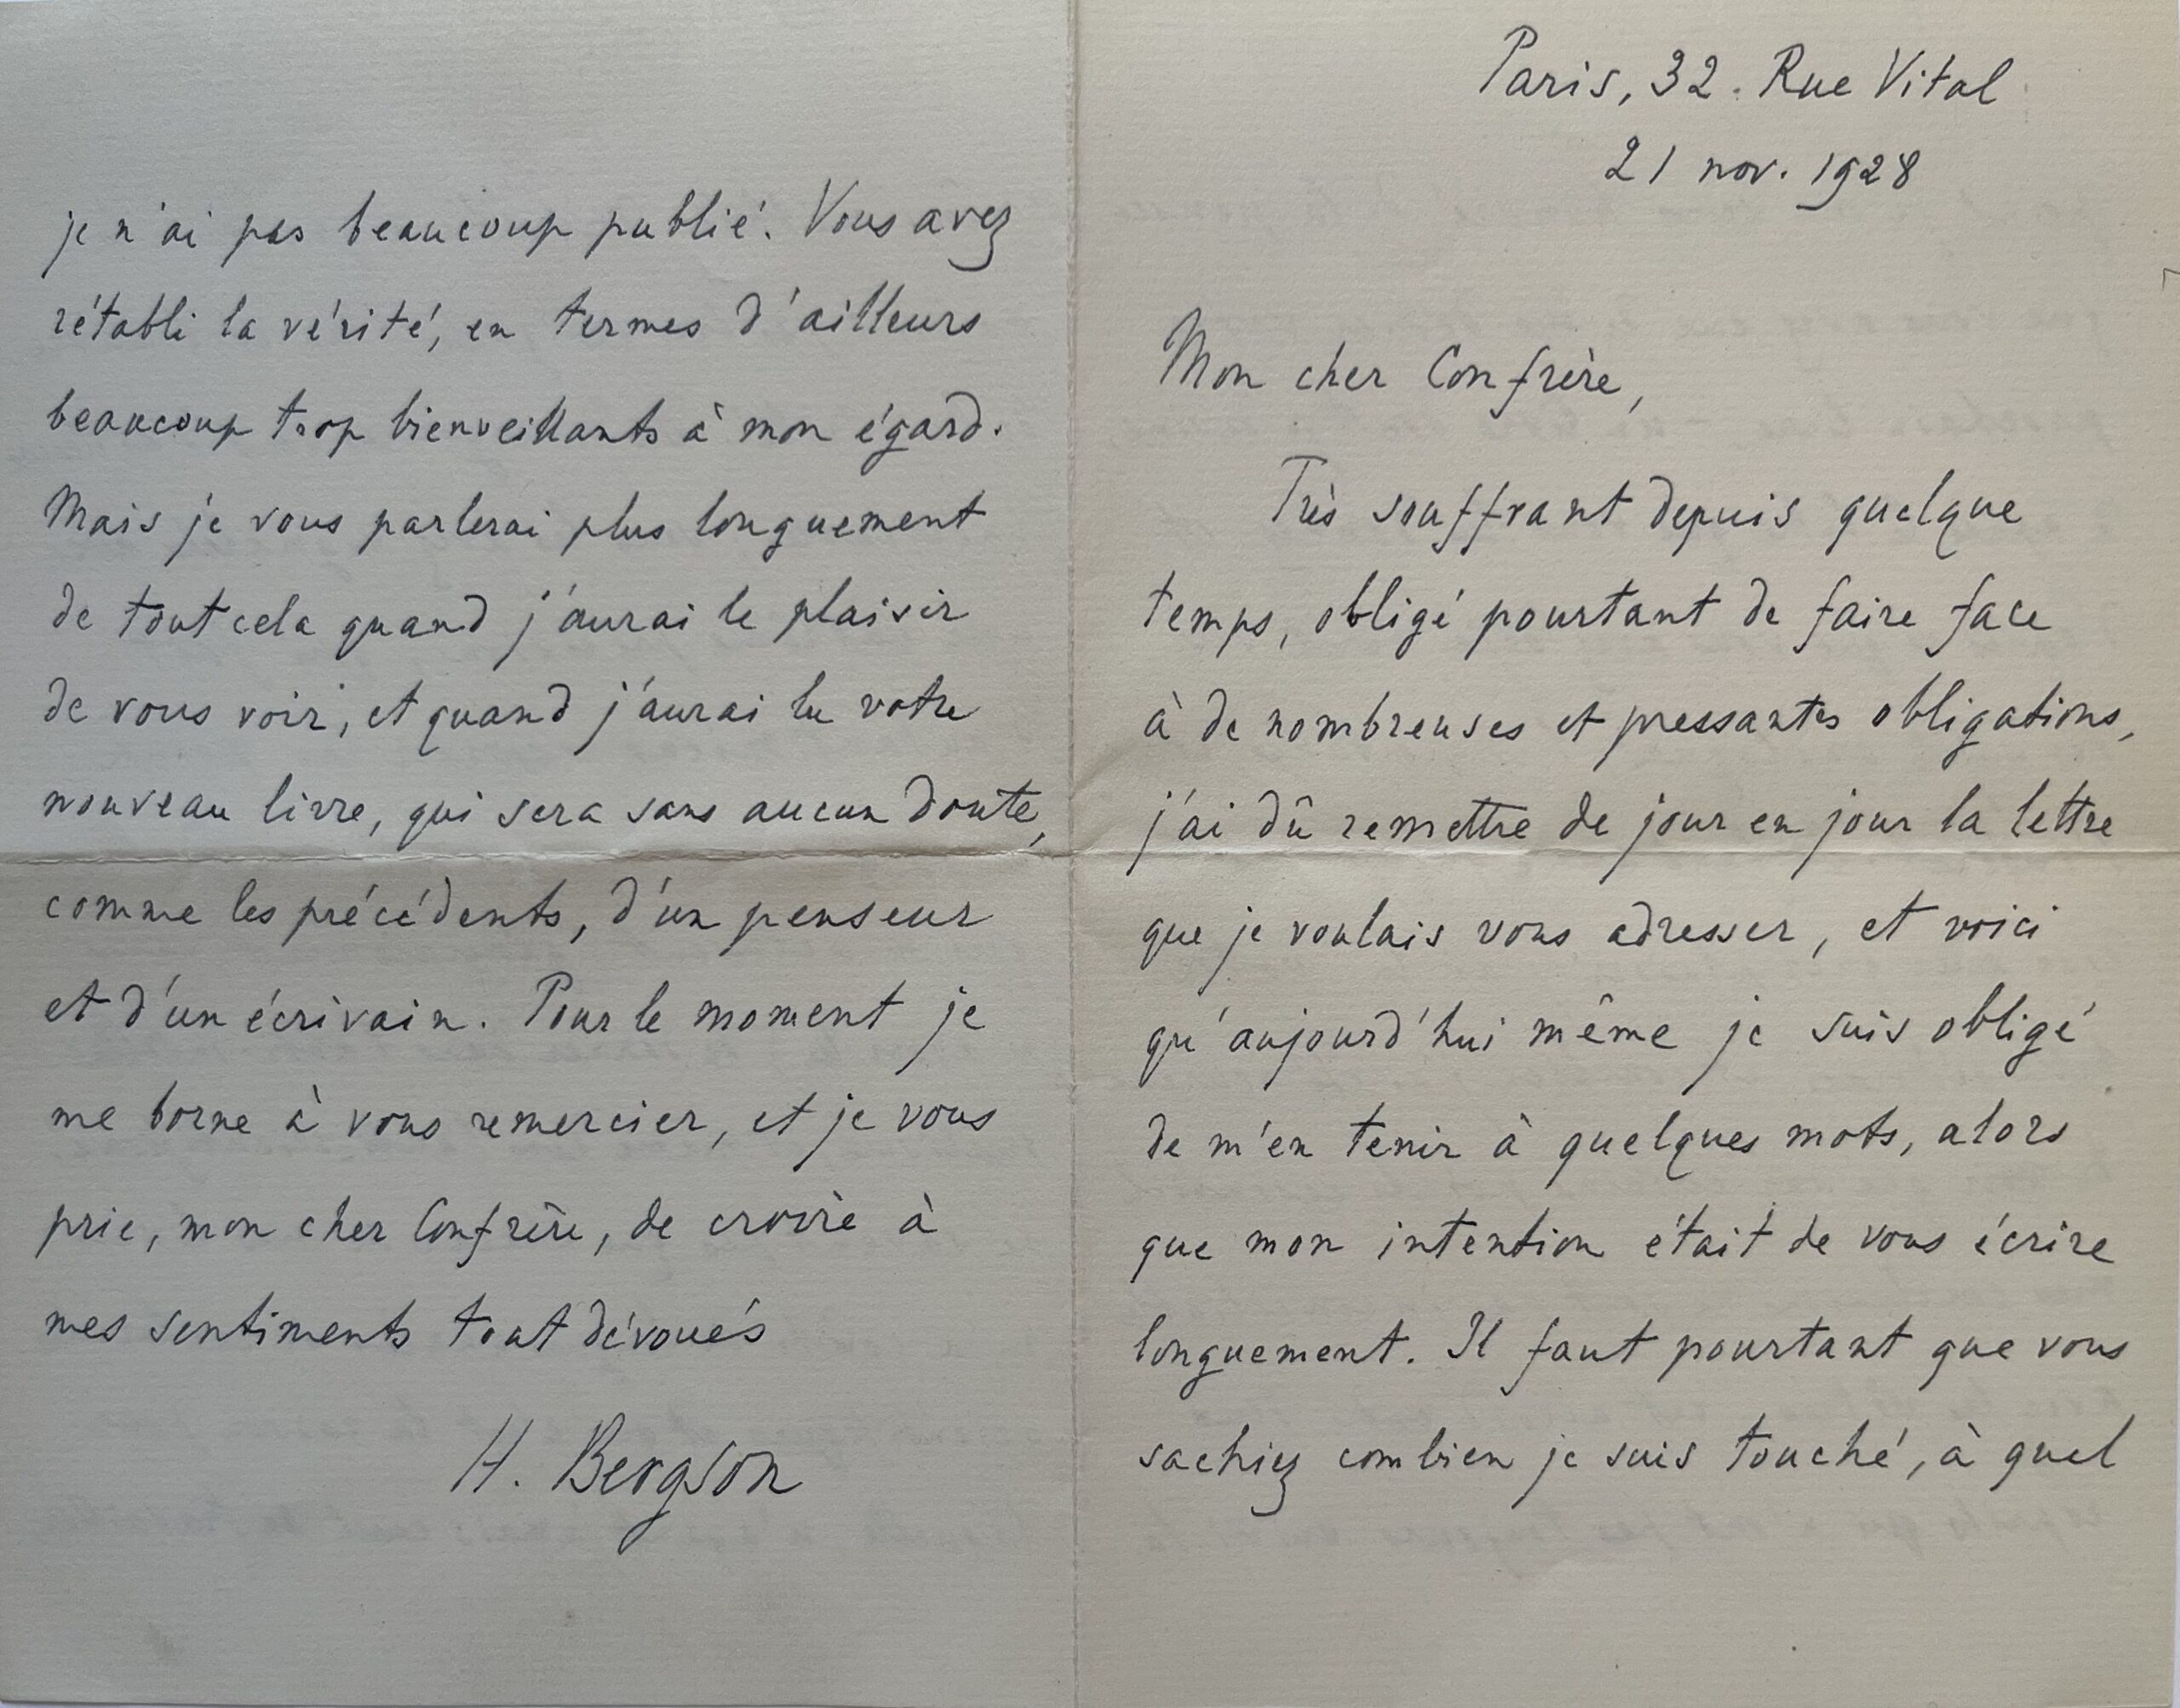 Paris, 32. Rue Vital
21 nov. 1928
Mon cher Confrère,
Très souffrant depuis quelque
temps, obligé pourtant de faire face
à de nombreuses et pressantes obligations,
j'ai dû remettre de jour en jour la lettre
que je voulais vous adresser, et voici
qu'aujourd'hui même je suis obligé
de m'en tenir à quelques mots, alors
que mon intention était de vous écrire
longuement. Il faut pourtant que vous
sachiez combien je suis touché, à quel
je n'ai pas beaucoup publié. Vous avez
rétabli la vérité, en termes d'ailleurs
beaucoup trop bienveillants à mon égard.
Mais je vous parlerai plus longuement
de tout cela quand j'aurai le plaisir
de vous voir, et quand j'aurai lu votre
nouveau livre, qui sera sans aucun doute,
comme les précédents, d'un penseur
et d'un écrivain. Pour le moment je
me borne à vous remercier, et je vous
prie, mon cher Confrère, de croire à
mes sentiments tout dévoués
H. Bergson